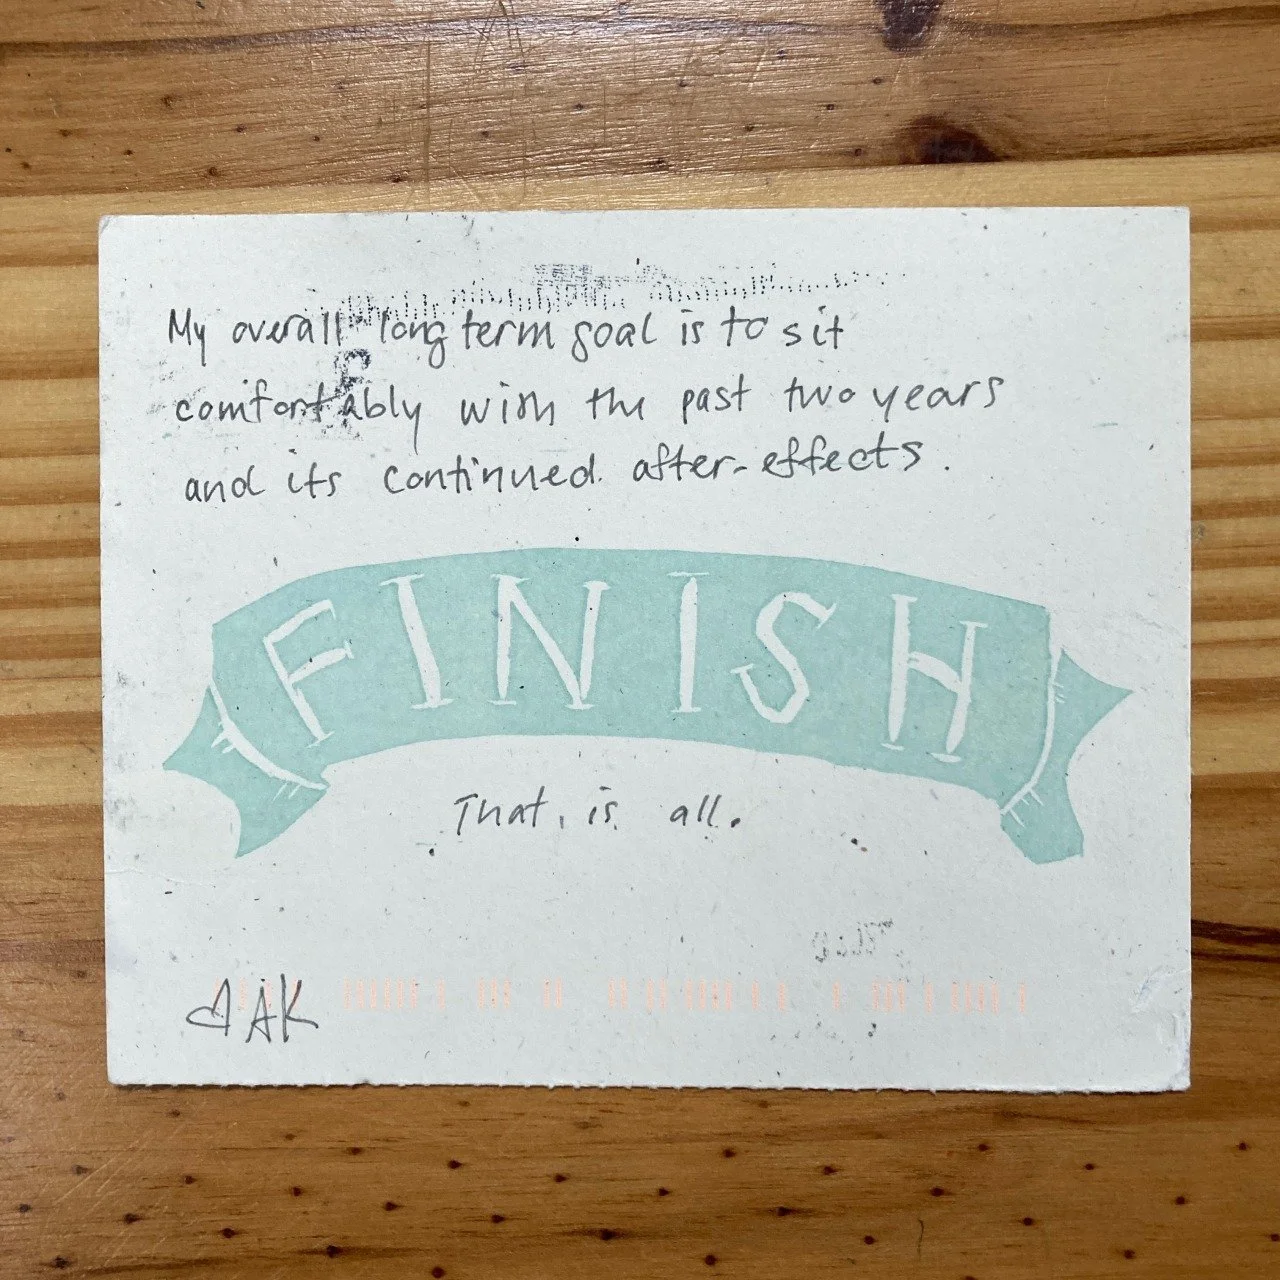 My overall long term goal is to sit
comfortably with the past two years
and its continued after-effects.
FINISH
That is all.
♡ AK